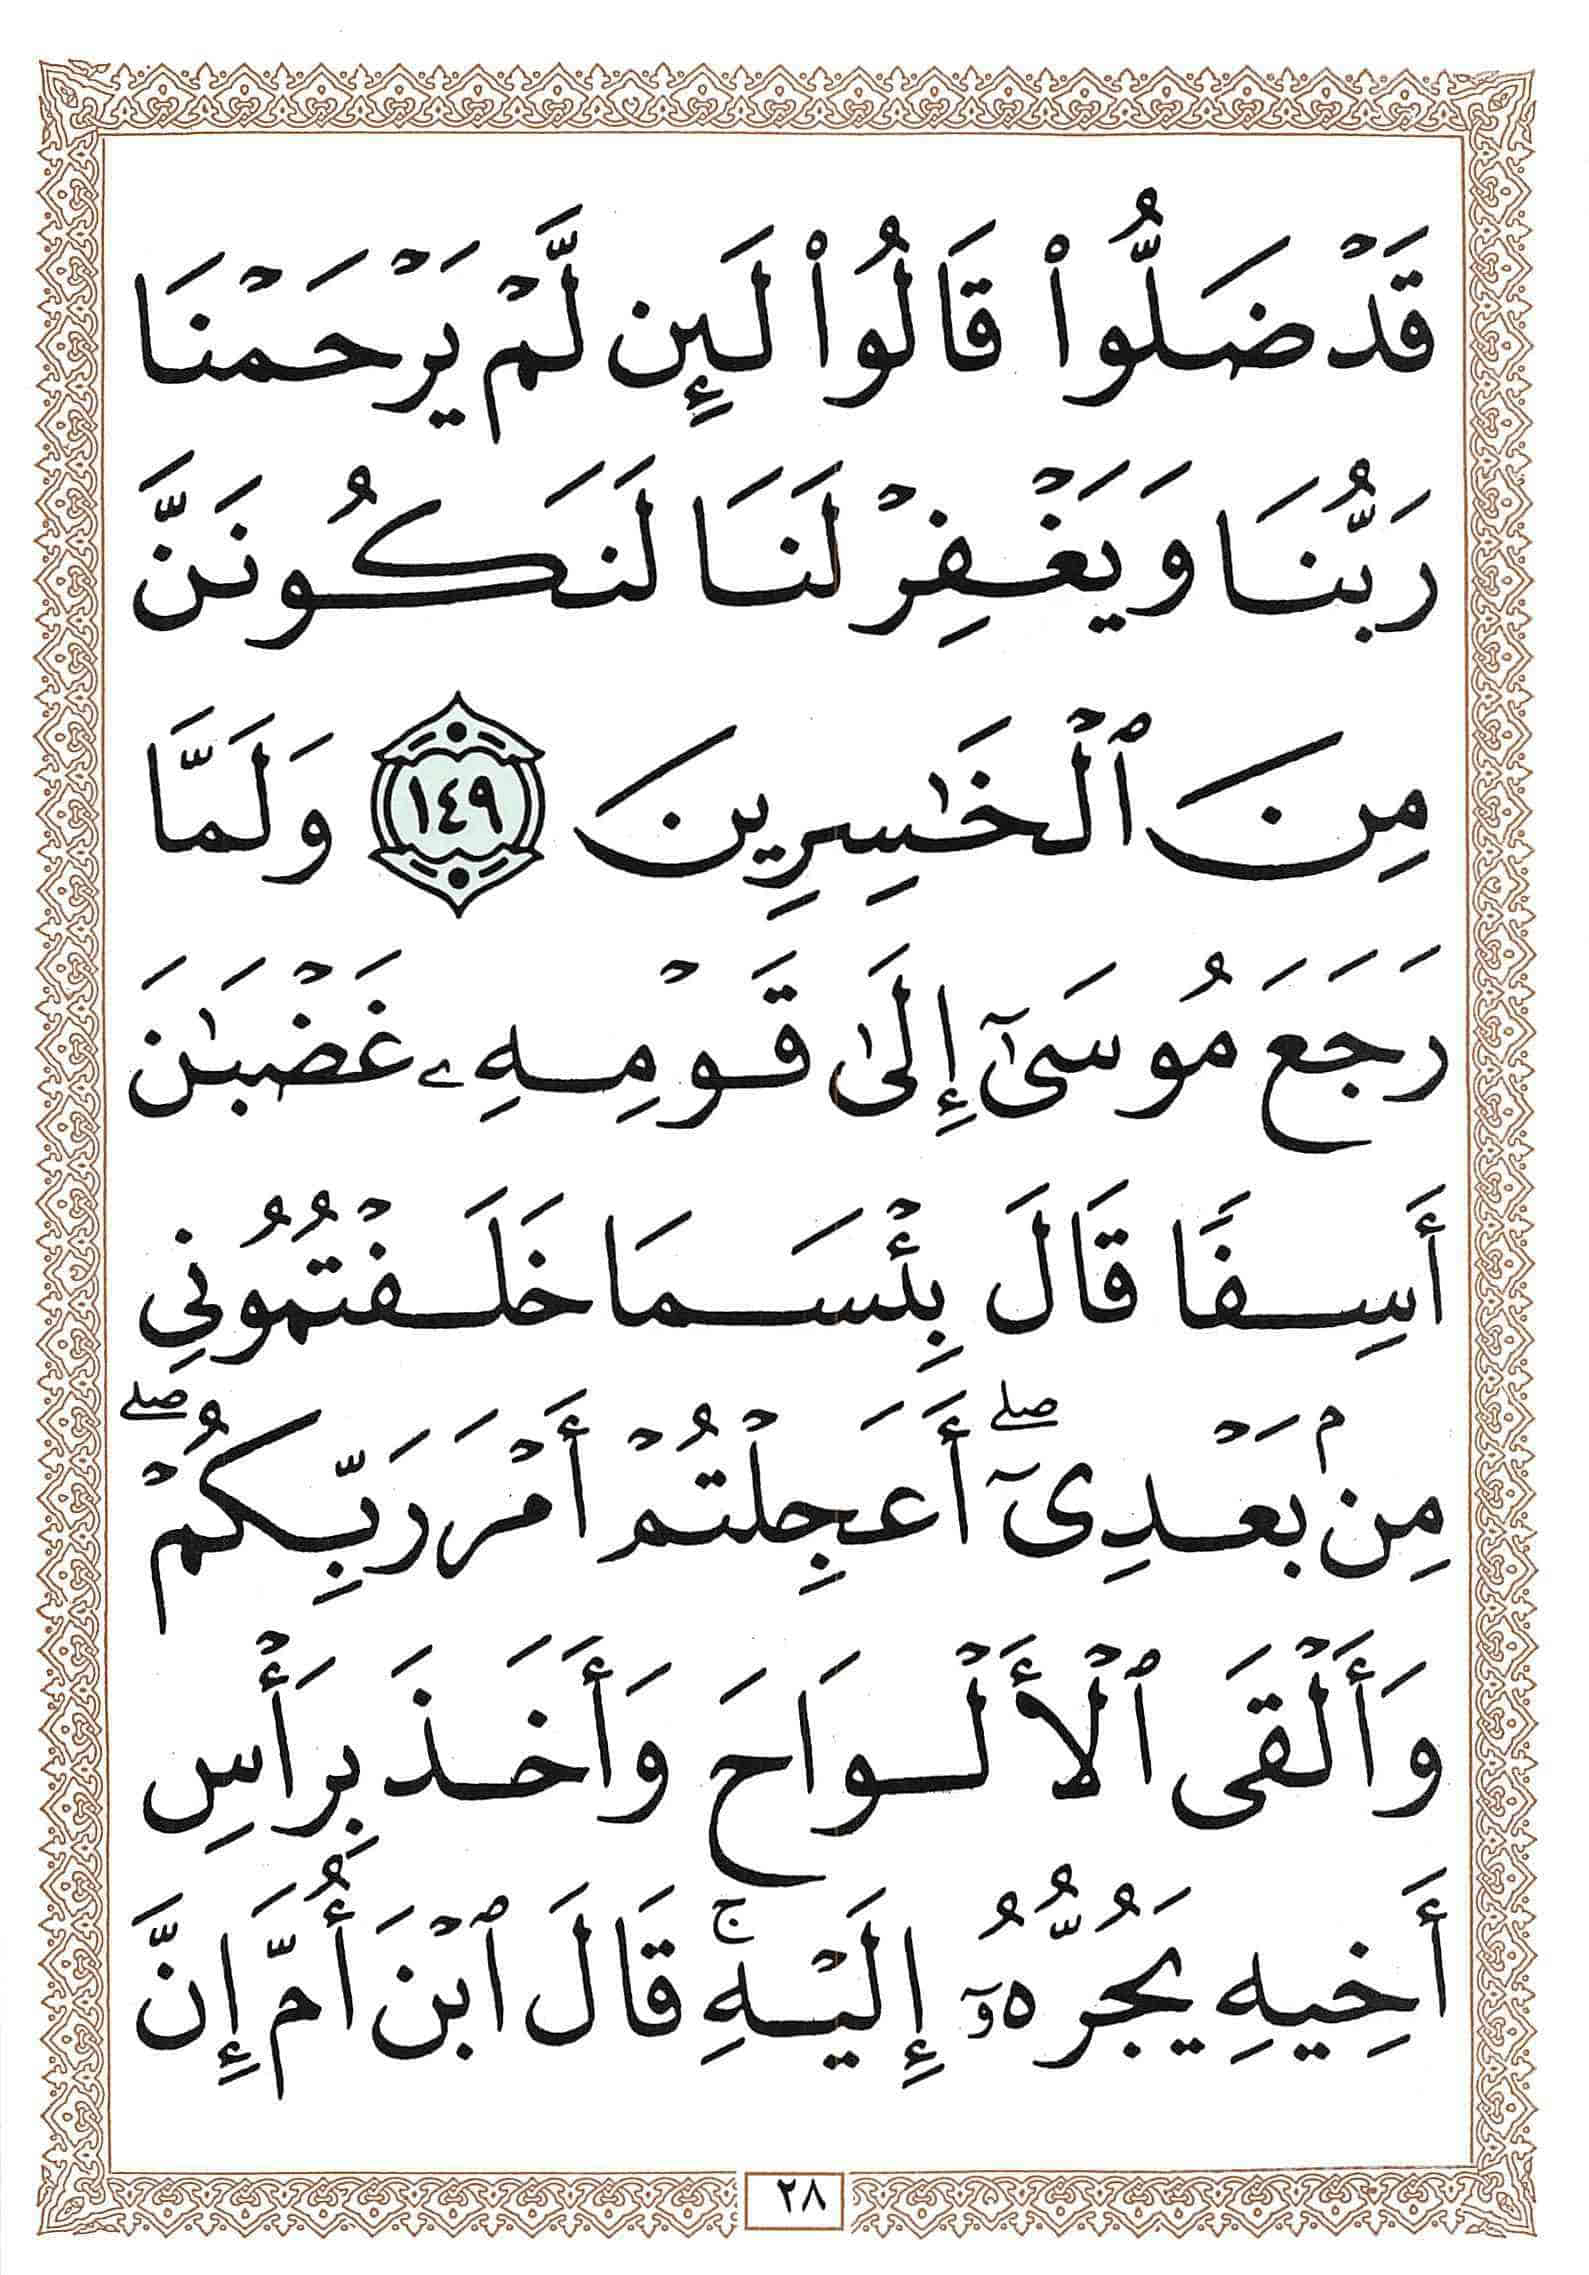 قَدْ ضَلُّوا۟ قَالُوا۟ لَئِن لَّمْ يَرْحَمْنَا
رَبُّنَا وَيَغْفِرْ لَنَا لَنَكُونَنَّ
مِنَ ٱلْخَٰسِرِينَ ١٤٩ وَلَمَّا
رَجَعَ مُوسَىٰٓ إِلَىٰ قَوْمِهِۦ غَضْبَٰنَ
أَسِفًا قَالَ بِئْسَمَا خَلَفْتُمُونِي
مِنۢ بَعْدِىٓ ۖ أَعَجِلْتُمْ أَمْرَ رَبِّكُمْ ۖ
وَأَلْقَى ٱلْأَلْوَاحَ وَأَخَذَ بِرَأْسِ
أَخِيهِ يَجُرُّهُۥٓ إِلَيْهِ ۚ قَالَ ٱبْنَ أُمَّ إِنَّ
٢٨